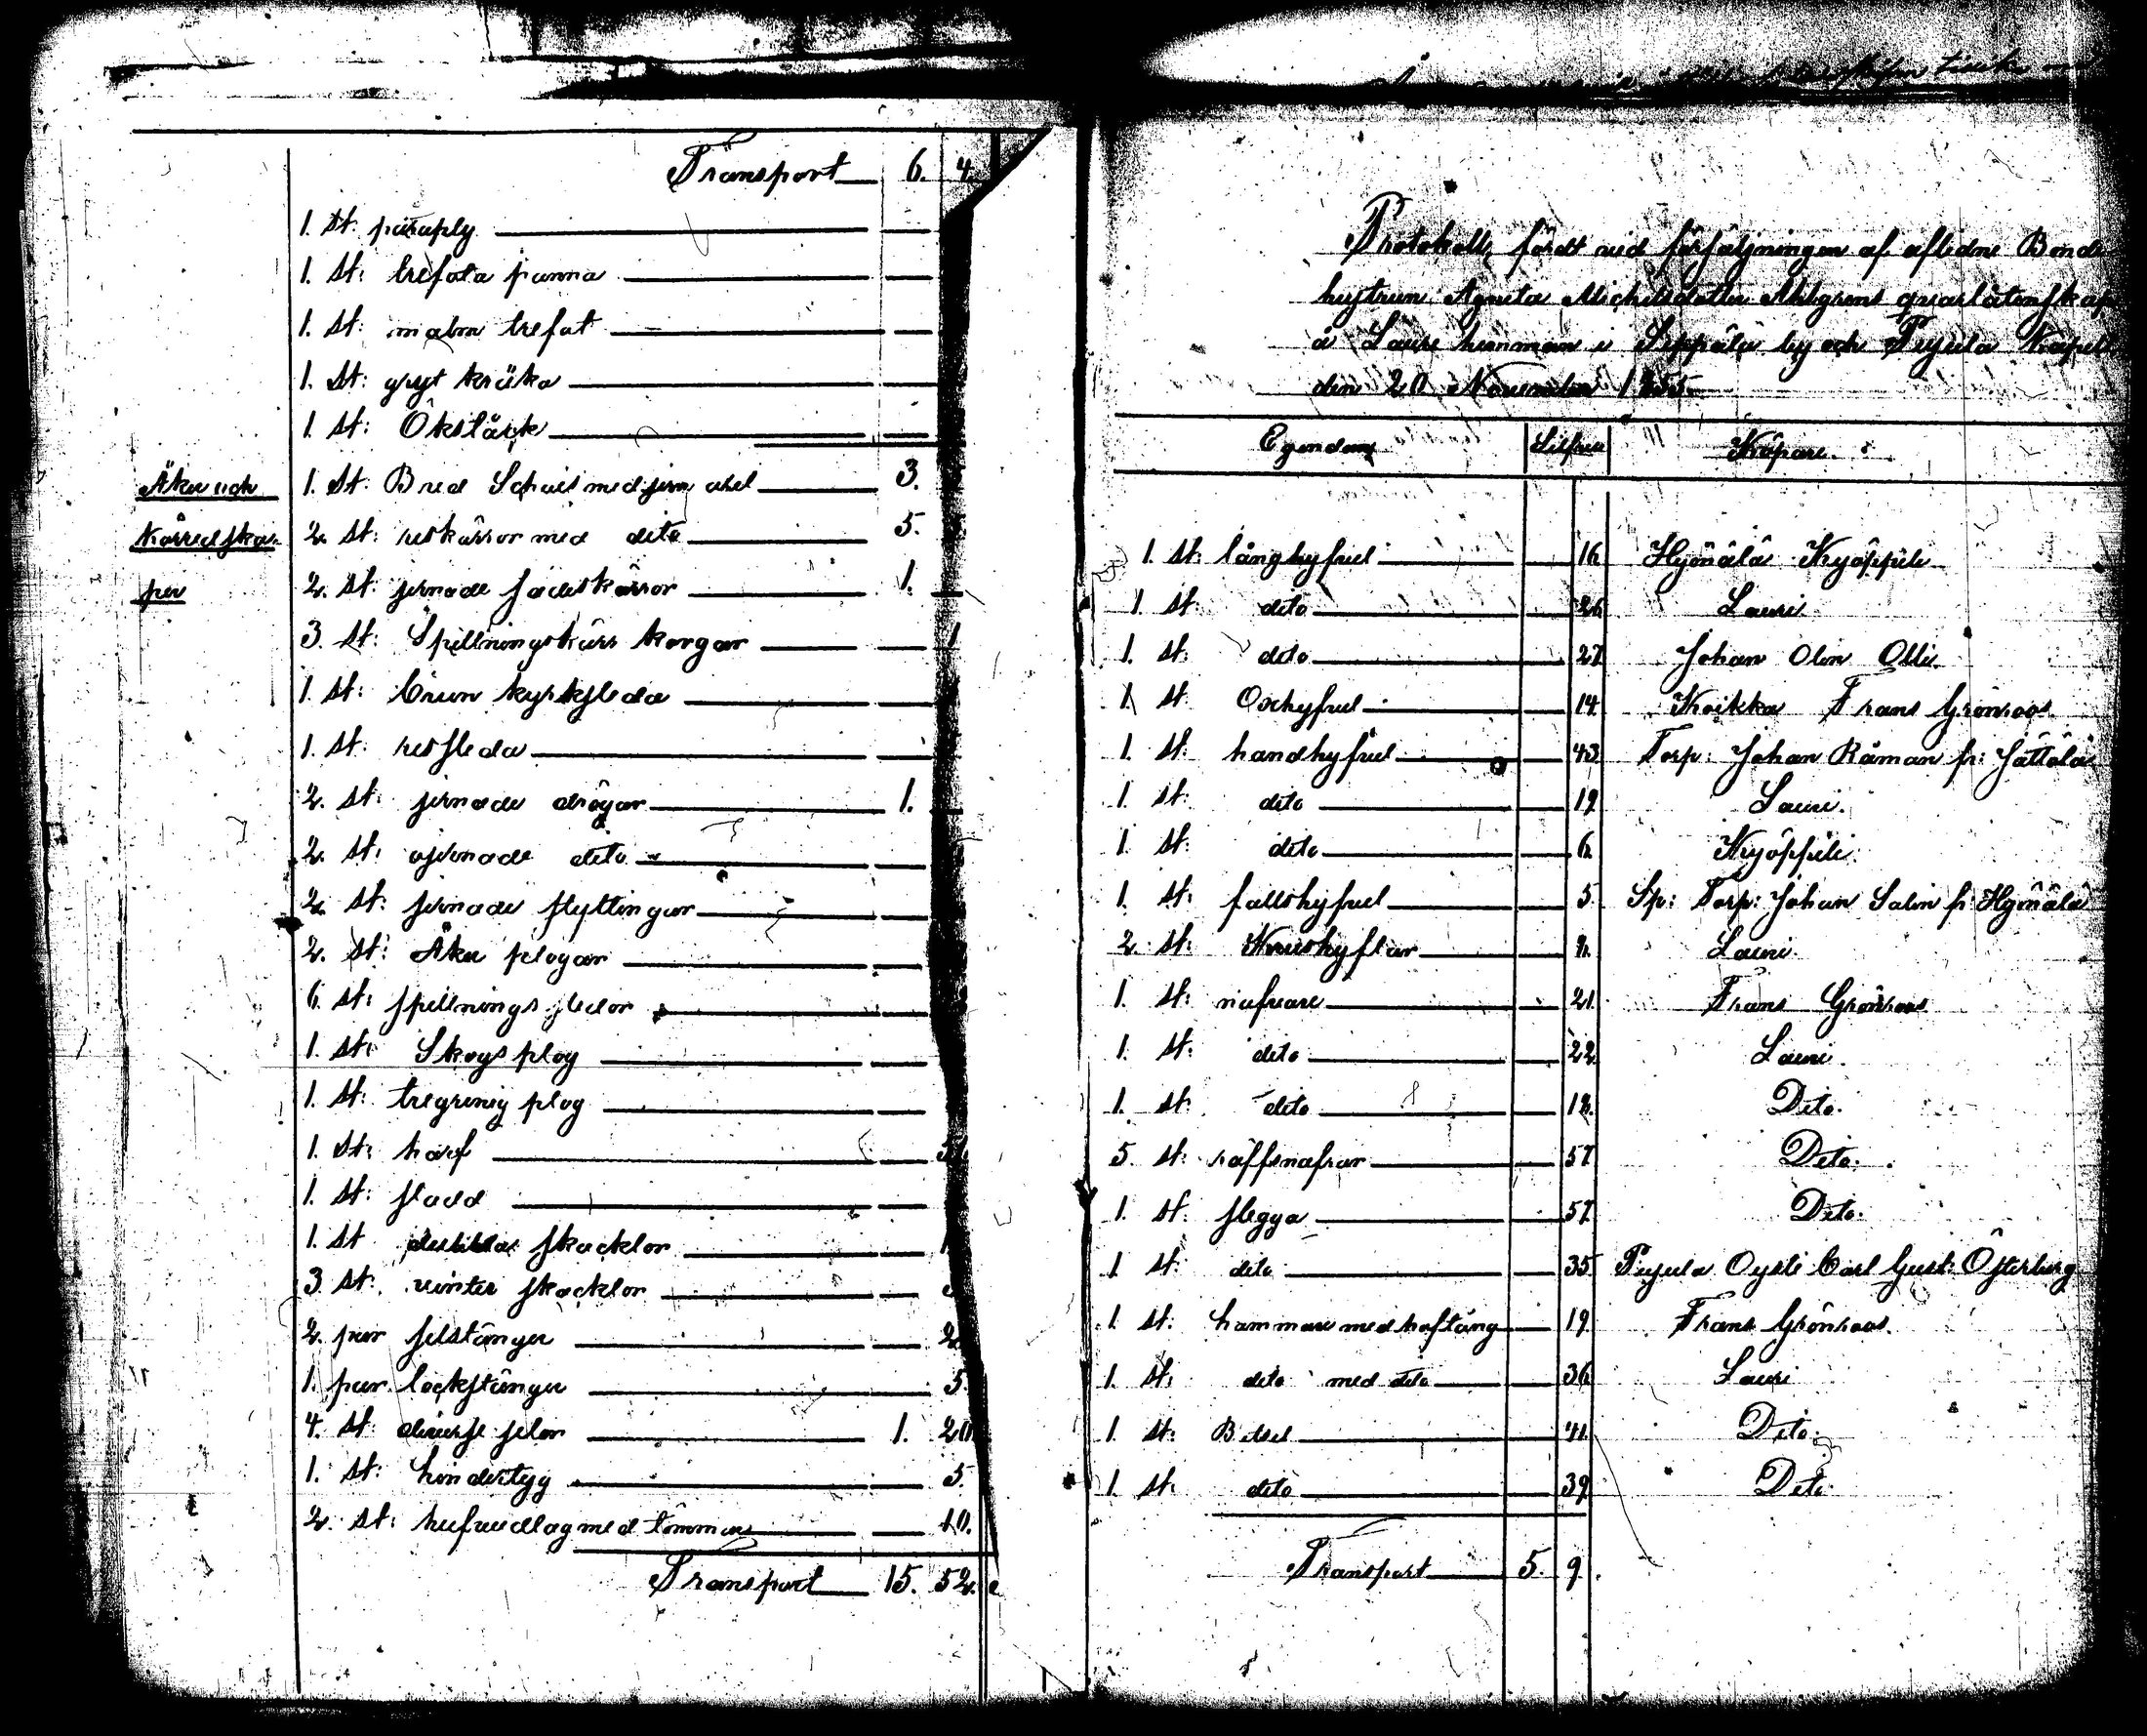 Transport 6. 4.
1. St: paraply
1. St: trefota panna
1. St: malm trefot
1. St: gryt kråka
1. St: Ökstäck
Åker och 1. St: Bred Schäs med jern axel 3.
Körredska- 2. St: reskärror med dito 5.
per 2. St: jernade fädeskärror 1.
3. St: Spillningskärs korgar 1
1. St: Brun kyrksleda
1. St: ressleda
2. St: jernade drögar 1.
2. St: ojernade dito
2. St: jernade flyttingar
2. St: Åker plogar
6. St: spillnings sledor
1. St: Skogs plog
1. St: tregrenig plog
1. St: harf
1. St: sladd
1. St skacklor
3. St: vinter skacklor
2. par selstänger 2
1. par lockstänger 5.
4. St: diverse selor 1. 20
1. St: hindertyg 5.
2. St: hufvudlag med tömmar 10.
Transport 15. 52.
Protokoll, fördt vid försäljningen af aflidne Bonde
hustrun Agneta Michelsdotter Ahlgrens qvarlåtenskap
å Lauri hemman i Seppälä by och Pyjula Kapell
den 20 November 1855.
Egendom Silfver Köpare.
1. St: långhyfvel 16. Hyönälä Kyöppili
1. St: dito 26. Lauri
1. St: dito 27. Johan Olin Olli
1. St: Oxhyfvel 14. Koikka Frans Grönroos
1. St: handhyfvel 43. Torp: Johan Råman fr: Jättölä
1. St: dito 19. Lauri.
1. St: dito 6. Kyöppili
1. St: falshyfvel 5. Sp: Torp: Johan Salin fr: Hyönälä
2. St: Krushyflar Lauri.
1. St: nafvare 21. Frans Grönroos
1. St: dito 22. Lauri.
1. St: dito Dito.
5. St: räffsnafrar 57. Dito.
1. St: slegga 57. Dito.
1. St: dito 35. Pyjula Oysti Carl Gust: Österberg
1. St: hammare med hoftång 19. Frans Grönroos.
1. St: dito med dito 36. Lauri
1. St: Betsel 41. Dito.
1. St: dito 39. Dito.
Transport 5. 9.